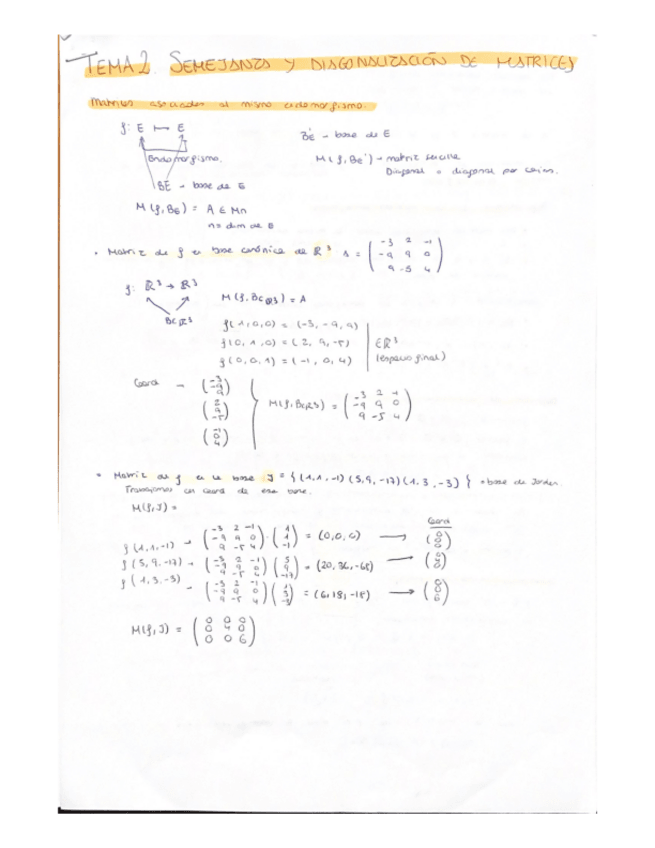 TEMA 2. SEMEJANZA Y DIAGONALIZACIÓN DE MATRICES
Matrices asociadas al mismo endomorfismo.
f: E → E
Endomorfismo.
BE → base de E
M(f, BE) = A ∈ Mn
n = dim de E
BE' → base de E
M(f, BE') → matriz sencilla
Diagonal o diagonal por cajas.
• Matriz de f en base canónica de R³ A = (-3 2 -1
-9 9 0
9 -5 4)
f: R³ → R³
BCR³
M(f, BCR³) = A
f(1,0,0) = (-3, -9, 9)
f(0,1,0) = (2, 9, -5)
f(0,0,1) = (-1, 0, 4)
∈ R³
(espacio final)
Coord → (-3 -9 9)
(2 9 -5)
(-1 0 4)
M(f, BCR³) = (-3 2 -1
-9 9 0
9 -5 4)
• Matriz de f en la base J = {(1,1,-1)(5,9,-17)(1,3,-3)} → base de Jordan.
Trabajamos con coord de esa base.
M(f,J) =
Coord
f(1,1,-1) → (-3 2 -1 -9 9 0 9 -5 4) · (1 1 -1) = (0,0,0) → (0 0 0)
f(5,9,-17) → (-3 2 -1 -9 9 0 9 -5 4) (5 9 -17) = (20, 36, -68) →
f(1,3,-3) → (-3 2 -1 -9 9 0 9 -5 4) (1 3 -3) = (6, 18, -18) → (0 0 6)
M(f,J) = (0 0 0
0 4 0
0 0 6)